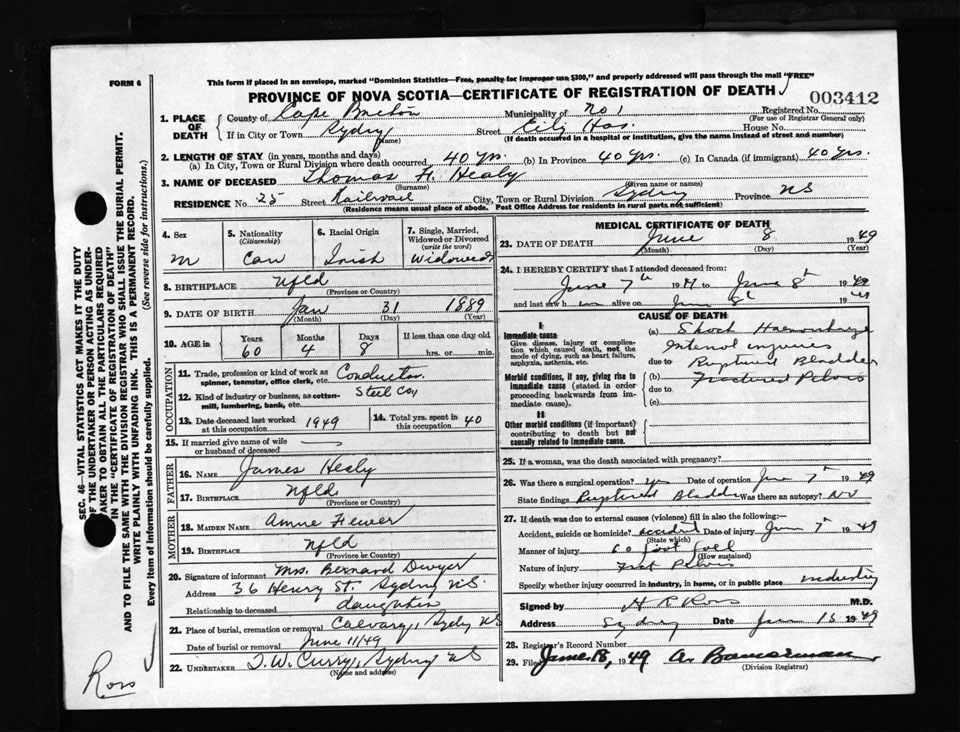 FORM 6
This form if placed in an envelope, marked "Dominion Statistics—Free, penalty for improper use $300," and properly addressed will pass through the mail "FREE"
PROVINCE OF NOVA SCOTIA—CERTIFICATE OF REGISTRATION OF DEATH
003412
1. PLACE OF DEATH
County of Cape Breton Municipality of No 1 Registered No.
(For use of Registrar General only)
If in City or Town Sydney (Name) Street City Hos. House No.
(If death occurred in a hospital or institution, give the name instead of street and number)
2. LENGTH OF STAY (in years, months and days)
(a) In City, Town or Rural Division where death occurred 40 yrs. (b) In Province 40 yrs. (c) In Canada (if immigrant) 40 yrs.
3. NAME OF DECEASED Thomas H. Healy
(Surname) (Given name or names)
RESIDENCE No. 25 Street Railroad City, Town or Rural Division Sydney Province NS
(Residence means usual place of abode. Post Office Address for residents in rural parts not sufficient)
4. Sex
M
5. Nationality (Citizenship)
Can
6. Racial Origin
Irish
7. Single, Married, Widowed or Divorced (write the word)
Widowed
8. BIRTHPLACE Nfld
(Province or Country)
9. DATE OF BIRTH Jan 31 1889
(Month) (Day) (Year)
10. AGE in Years 60 Months 4 Days 8 If less than one day old hrs. or min.
OCCUPATION
11. Trade, profession or kind of work as spinner, teamster, office clerk, etc. Conductor
12. Kind of industry or business, as cotton-mill, lumbering, bank, etc. Steel Co.
13. Date deceased last worked at this occupation 1949
14. Total yrs. spent in this occupation 40
15. If married give name of wife or husband of deceased —
FATHER
16. NAME James Healy
17. BIRTHPLACE Nfld
(Province or Country)
MOTHER
18. MAIDEN NAME Anne
19. BIRTHPLACE Nfld
(Province or Country)
20. Signature of informant Mrs. Bernard Dwyer
Address 36 Henry St. Sydney N.S.
Relationship to deceased daughter
21. Place of burial, cremation or removal Calvary, Sydney NS
Date of burial or removal June 11/49
22. UNDERTAKER T. W. Curry, Sydney NS
(Name and address)
MEDICAL CERTIFICATE OF DEATH
23. DATE OF DEATH June 8 1949
(Month) (Day) (Year)
24. I HEREBY CERTIFY that I attended deceased from:
June 7th 19 to June 8th 1949
and last saw h im alive on June 8th 1949
CAUSE OF DEATH
I
Immediate cause
Give disease, injury or complication which caused death, not the mode of dying, such as heart failure, asphyxia, asthenia, etc.
(a) Shock Haemorrhage
Internal injuries
due to Ruptured Bladder
Morbid conditions, if any, giving rise to immediate cause (stated in order proceeding backwards from immediate cause).
(b) Fractured Pelvis
due to
(c)
II
Other morbid conditions (if important) contributing to death but not causally related to immediate cause.
25. If a woman, was the death associated with pregnancy?
26. Was there a surgical operation? yes Date of operation June 7 1949
State findings Ruptured Bladder Was there an autopsy? No
27. If death was due to external causes (violence) fill in also the following:—
Accident, suicide or homicide? accident Date of injury June 7th 1949
(State which)
Manner of injury 60 foot fall
(How sustained)
Nature of injury Fract Pelvis
Specify whether injury occurred in industry, in home, or in public place industry
Signed by H R Ross M.D.
Address Sydney Date June 15 1949
28. Registrar's Record Number
29. Filed June 18, 1949
(Division Registrar)
SEC. 46—VITAL STATISTICS ACT MAKES IT THE DUTY OF THE UNDERTAKER OR PERSON ACTING AS UNDERTAKER TO OBTAIN ALL THE PARTICULARS REQUIRED IN THE "CERTIFICATE OF REGISTRATION OF DEATH" AND TO FILE THE SAME WITH THE DIVISION REGISTRAR WHO SHALL ISSUE THE BURIAL PERMIT.
WRITE PLAINLY WITH UNFADING INK. THIS IS A PERMANENT RECORD.
Every item of information should be carefully supplied. (See reverse side for instructions.)
Ross